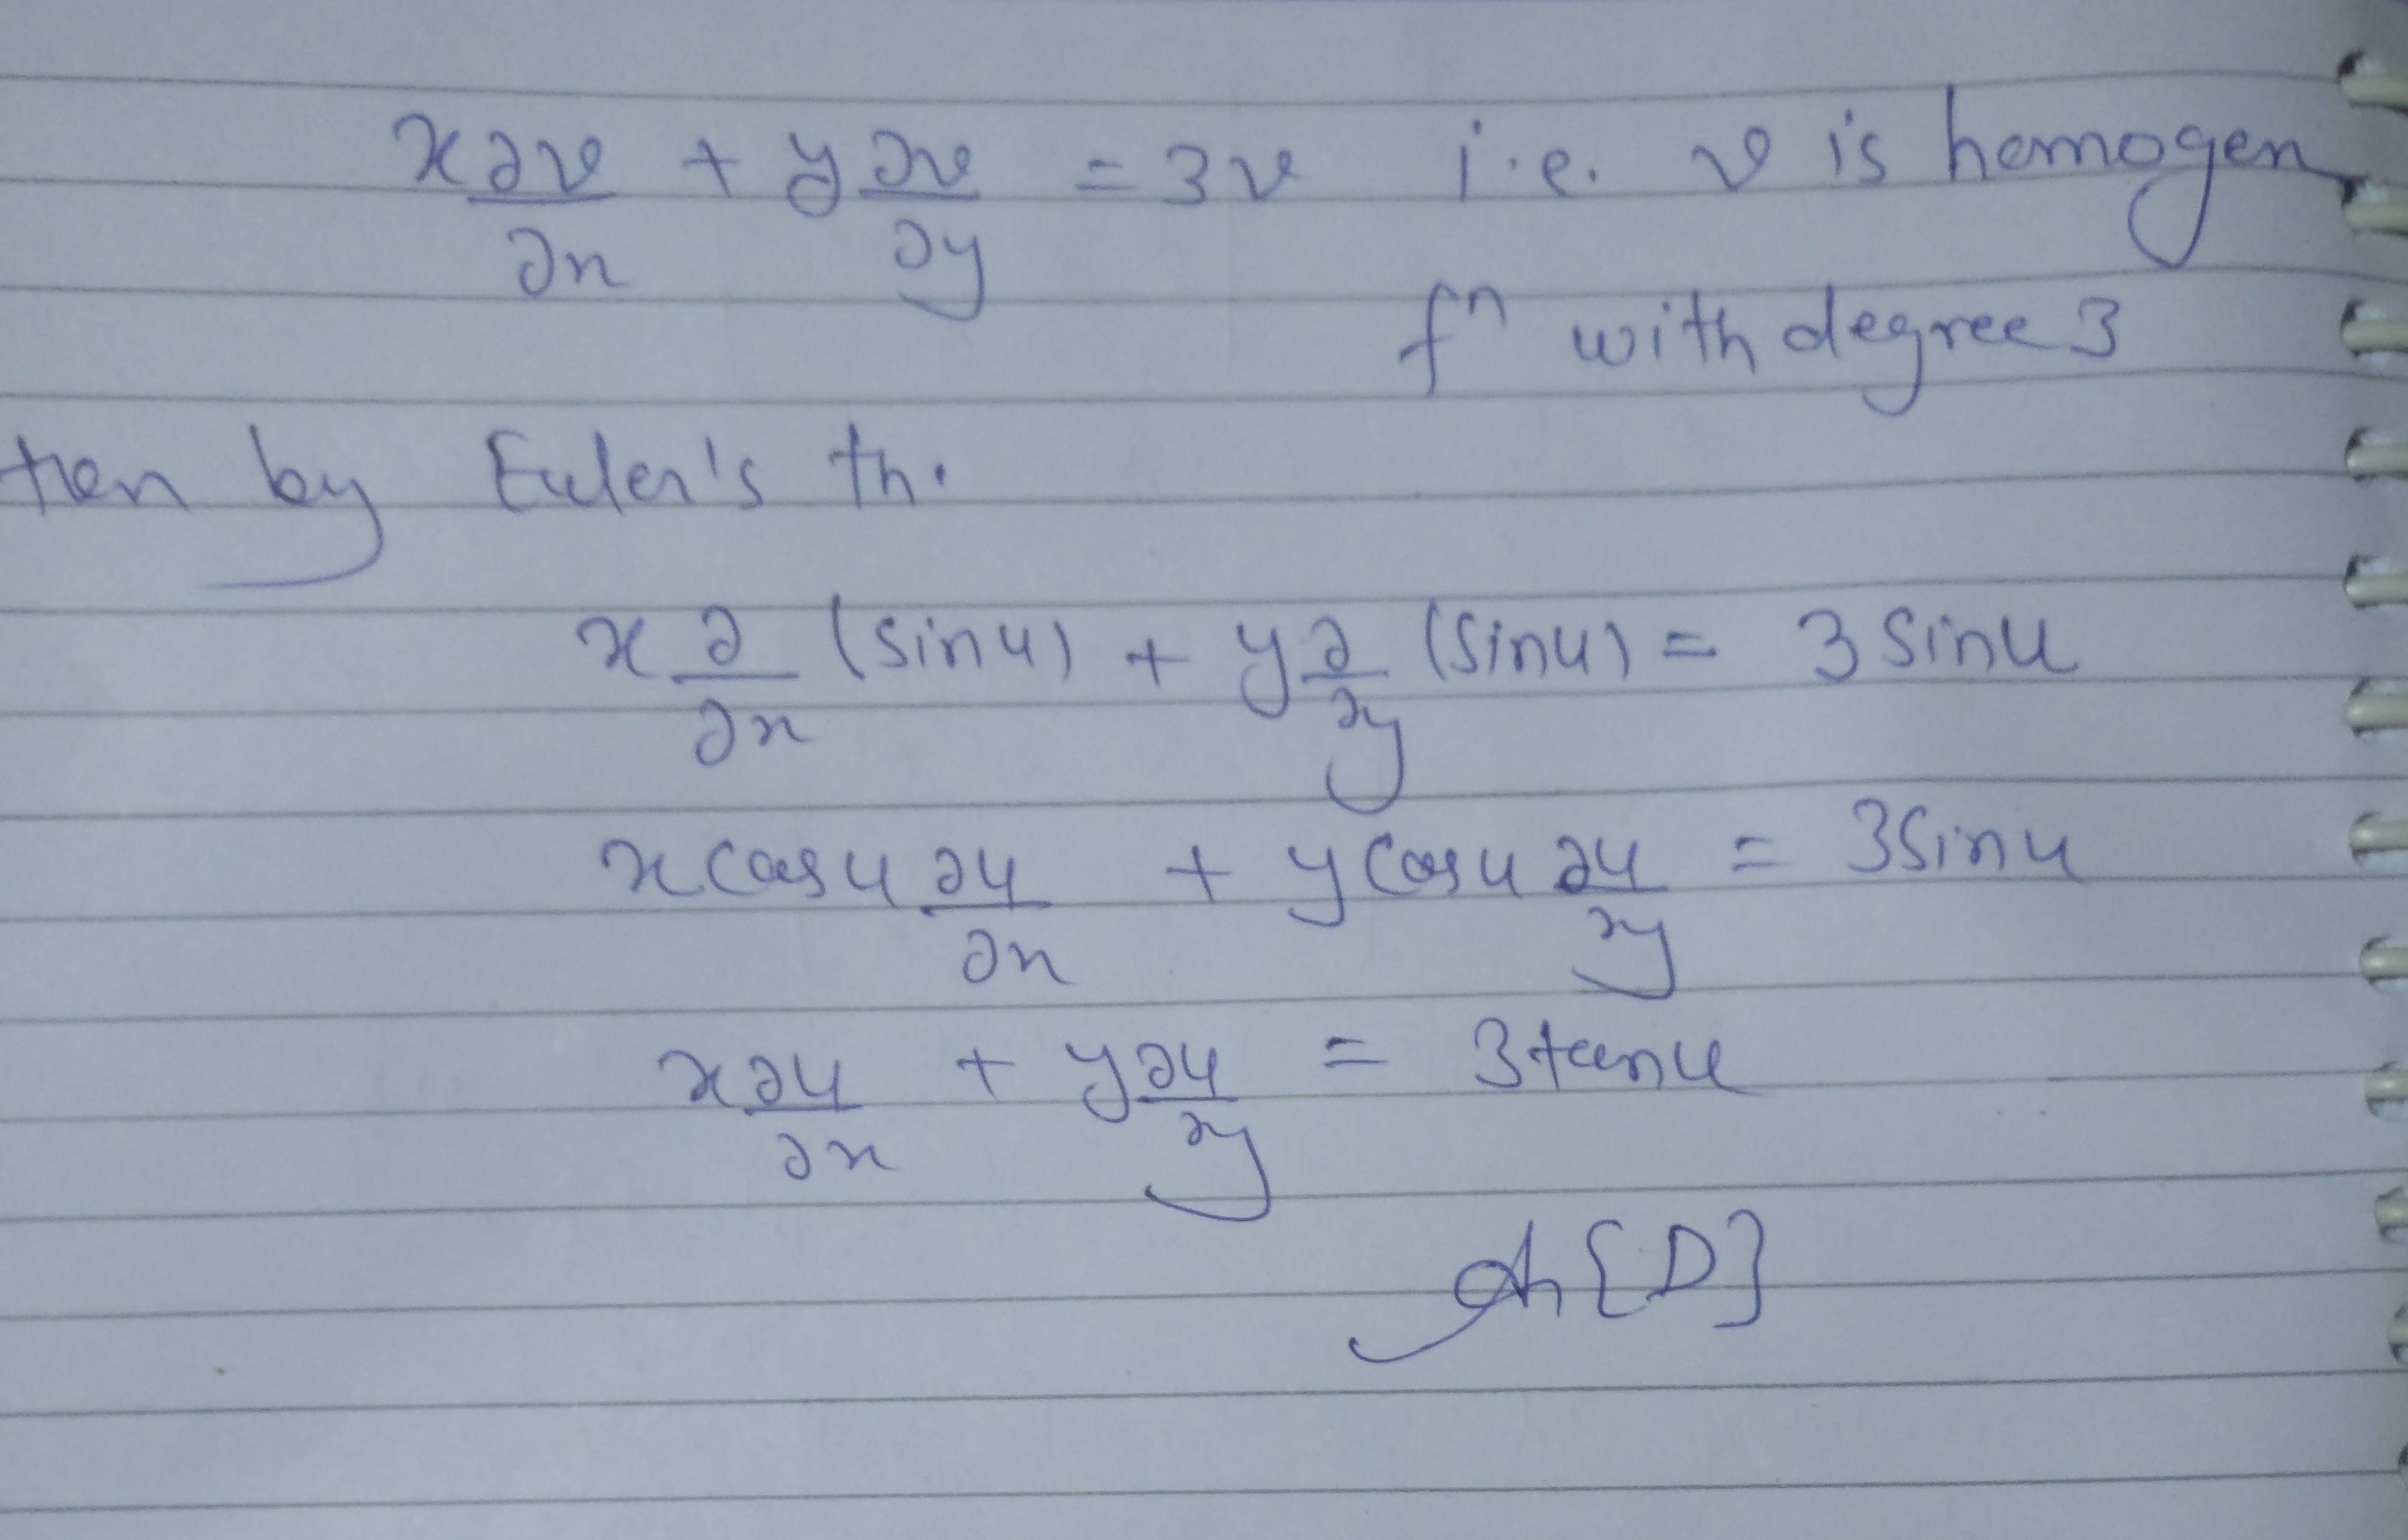 x ∂v/∂x + y ∂v/∂y = 3v i.e. v is homogen
fⁿ with degree 3
then by Euler's th.
x ∂/∂x (sin u) + y ∂/∂y (sin u) = 3 sin u
x cos u ∂u/∂x + y cos u ∂u/∂y = 3 sin u
x ∂u/∂x + y ∂u/∂y = 3 tan u
{D}